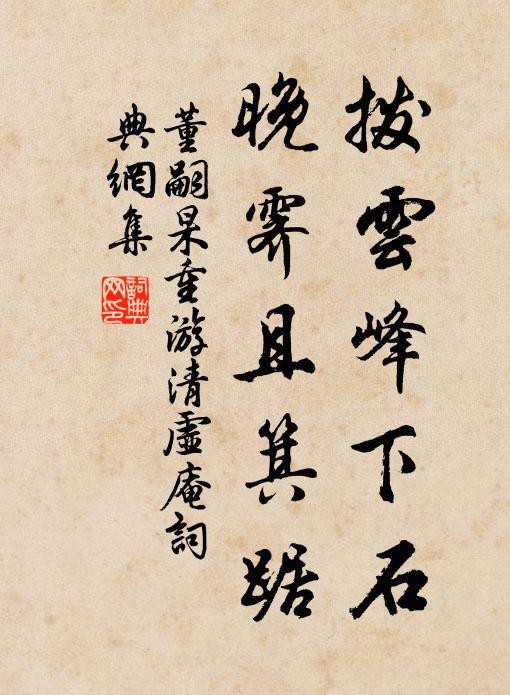 拨雲峰下石
晚霽且箕踞
董嗣杲重游清虛庵詞
典網集
詞典
网印